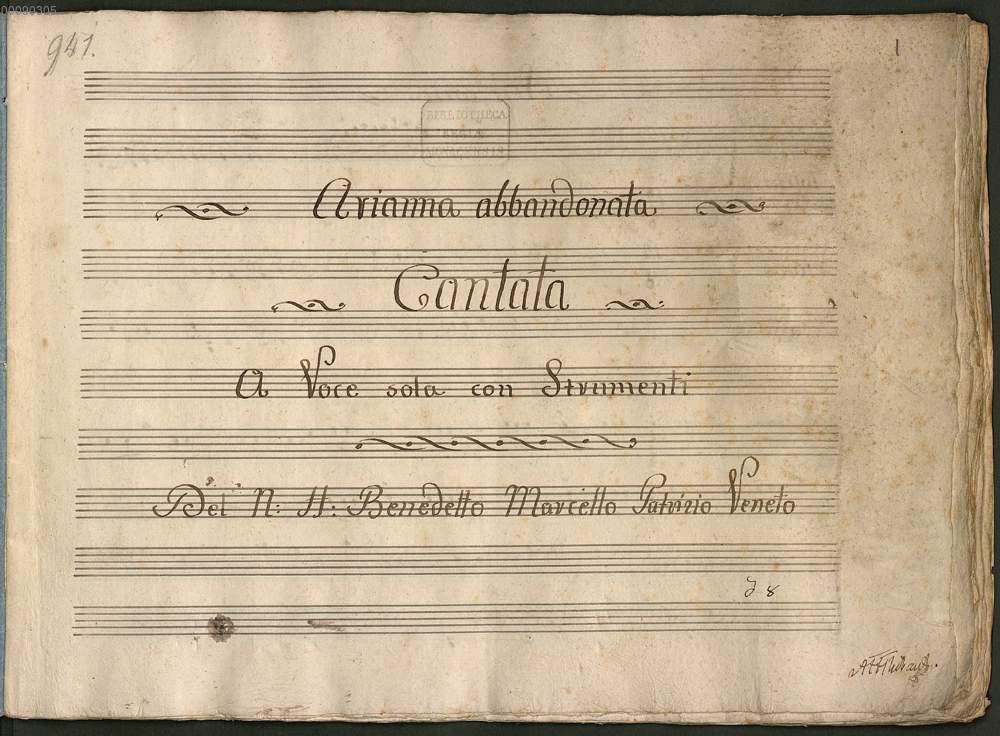 00090305
941.
1
BIBLIOTHECA
REGIA
MONACENSIS
Arianna abbandonata
Cantata
A Voce sola con Strumenti
Del N: H: Benedetto Marcello Patrizio Veneto
8